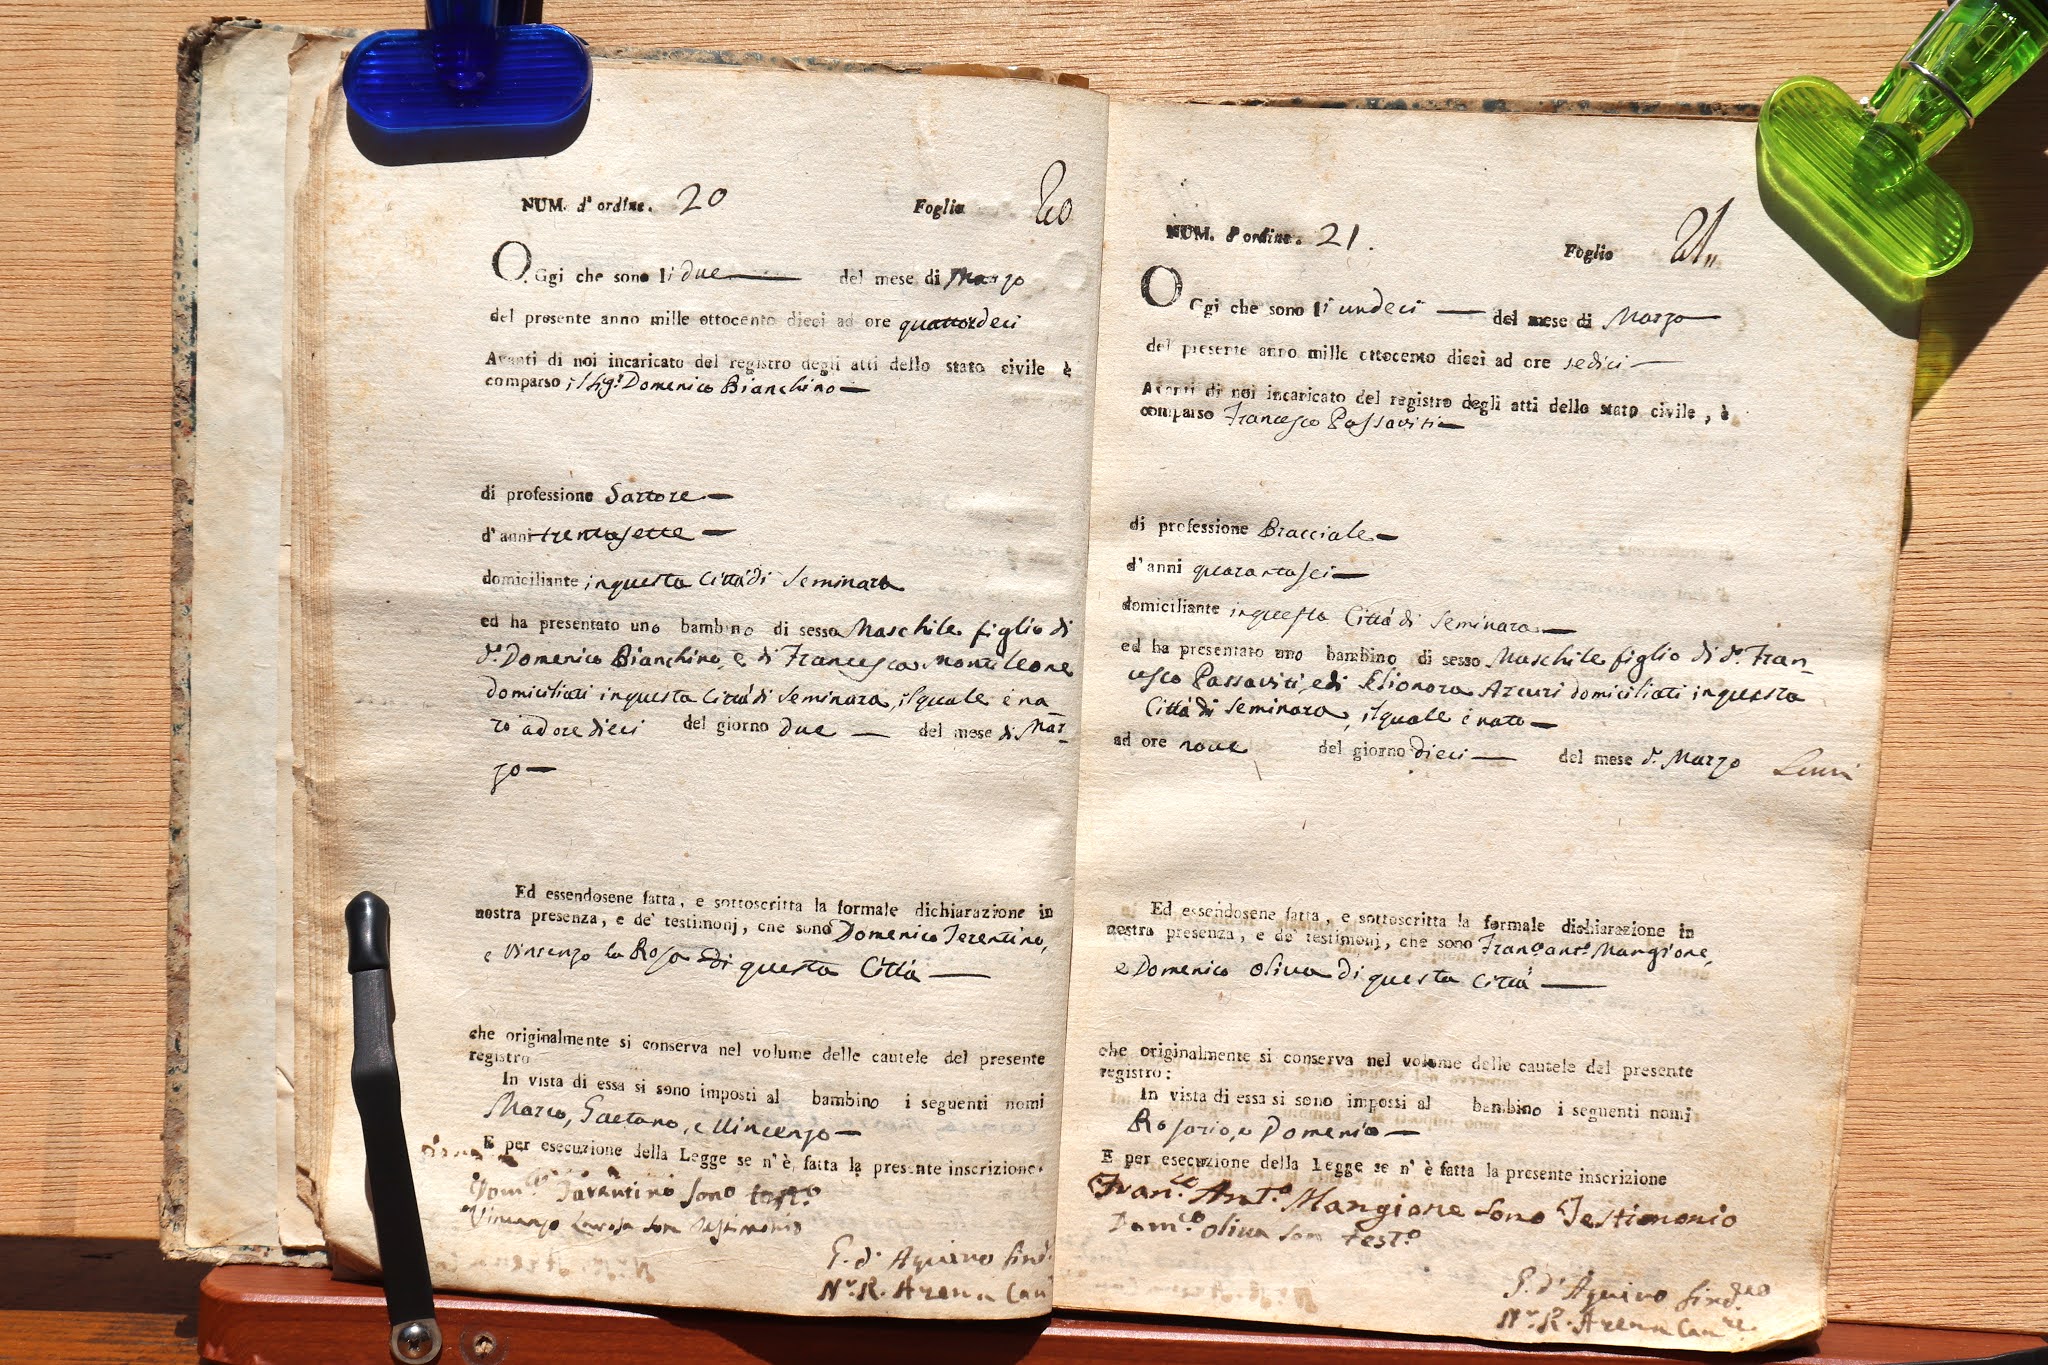 NUM. d'ordine. 20 Foglio 20
OGgi che sono li due del mese di Marzo
del presente anno mille ottocento dieci ad ore quattordeci
Avanti di noi incaricato del registro degli atti dello stato civile è
comparso il Sigr. Domenico Bianchino
di professione Sartore
d'anni trentasette
domiciliante in questa Città di Seminara
ed ha presentato uno bambino di sesso Maschile figlio di
do. Domenico Bianchino, e di Francesca Monteleone
domiciliati in questa Città di Seminara, il quale è na
to ad ore dieci del giorno due del mese di Mar-
zo
Ed essendosene fatta, e sottoscritta la formale dichiarazione in
nostra presenza, e de' testimonj, che sono Domenico Terentino,
e Vincenzo la Rosa di questa Città
che originalmente si conserva nel volume delle cautele del presente
registro
In vista di essa si sono imposti al bambino i seguenti nomi
Marco, Gaetano, e Vincenzo
E per esecuzione della Legge se n'è fatta la presente inscrizione.
Domco Tarantino sono testo
Vincenzo Larosa son Testimonio
G. d'Aquino Sind.
Nr. R. Arena Can
NUM. d'ordine. 21. Foglio 21
OGgi che sono li undeci del mese di Marzo
del presente anno mille ottocento dieci ad ore sedici
Avanti di noi incaricato del registro degli atti dello stato civile, è
comparso Francesco Passaviti
di professione Bracciale
d'anni quarantasei
domiciliante in questa Città di Seminara
ed ha presentato uno bambino di sesso Maschile figlio di do. Fran-
cesco Passaviti, e di Elionora Arcuri domiciliati in questa
Città di Seminara, il quale è nato
ad ore nove del giorno dieci del mese di Marzo
Ed essendosene fatta, e sottoscritta la formale dichiarazione in
nostra presenza, e de' testimonj, che sono Franco. anto. Mangione,
e Domenico Oliva di questa Città
che originalmente si conserva nel volume delle cautele del presente
registro:
In vista di essa si sono imposti al bambino i seguenti nomi
Rosario, e Domenico
E per esecuzione della Legge se n'è fatta la presente inscrizione
Franco. Anto. Mangione sono Testimonio
Domco Oliva son testo
G. d'Aquino Sindco
Nr. R. Arena Canre